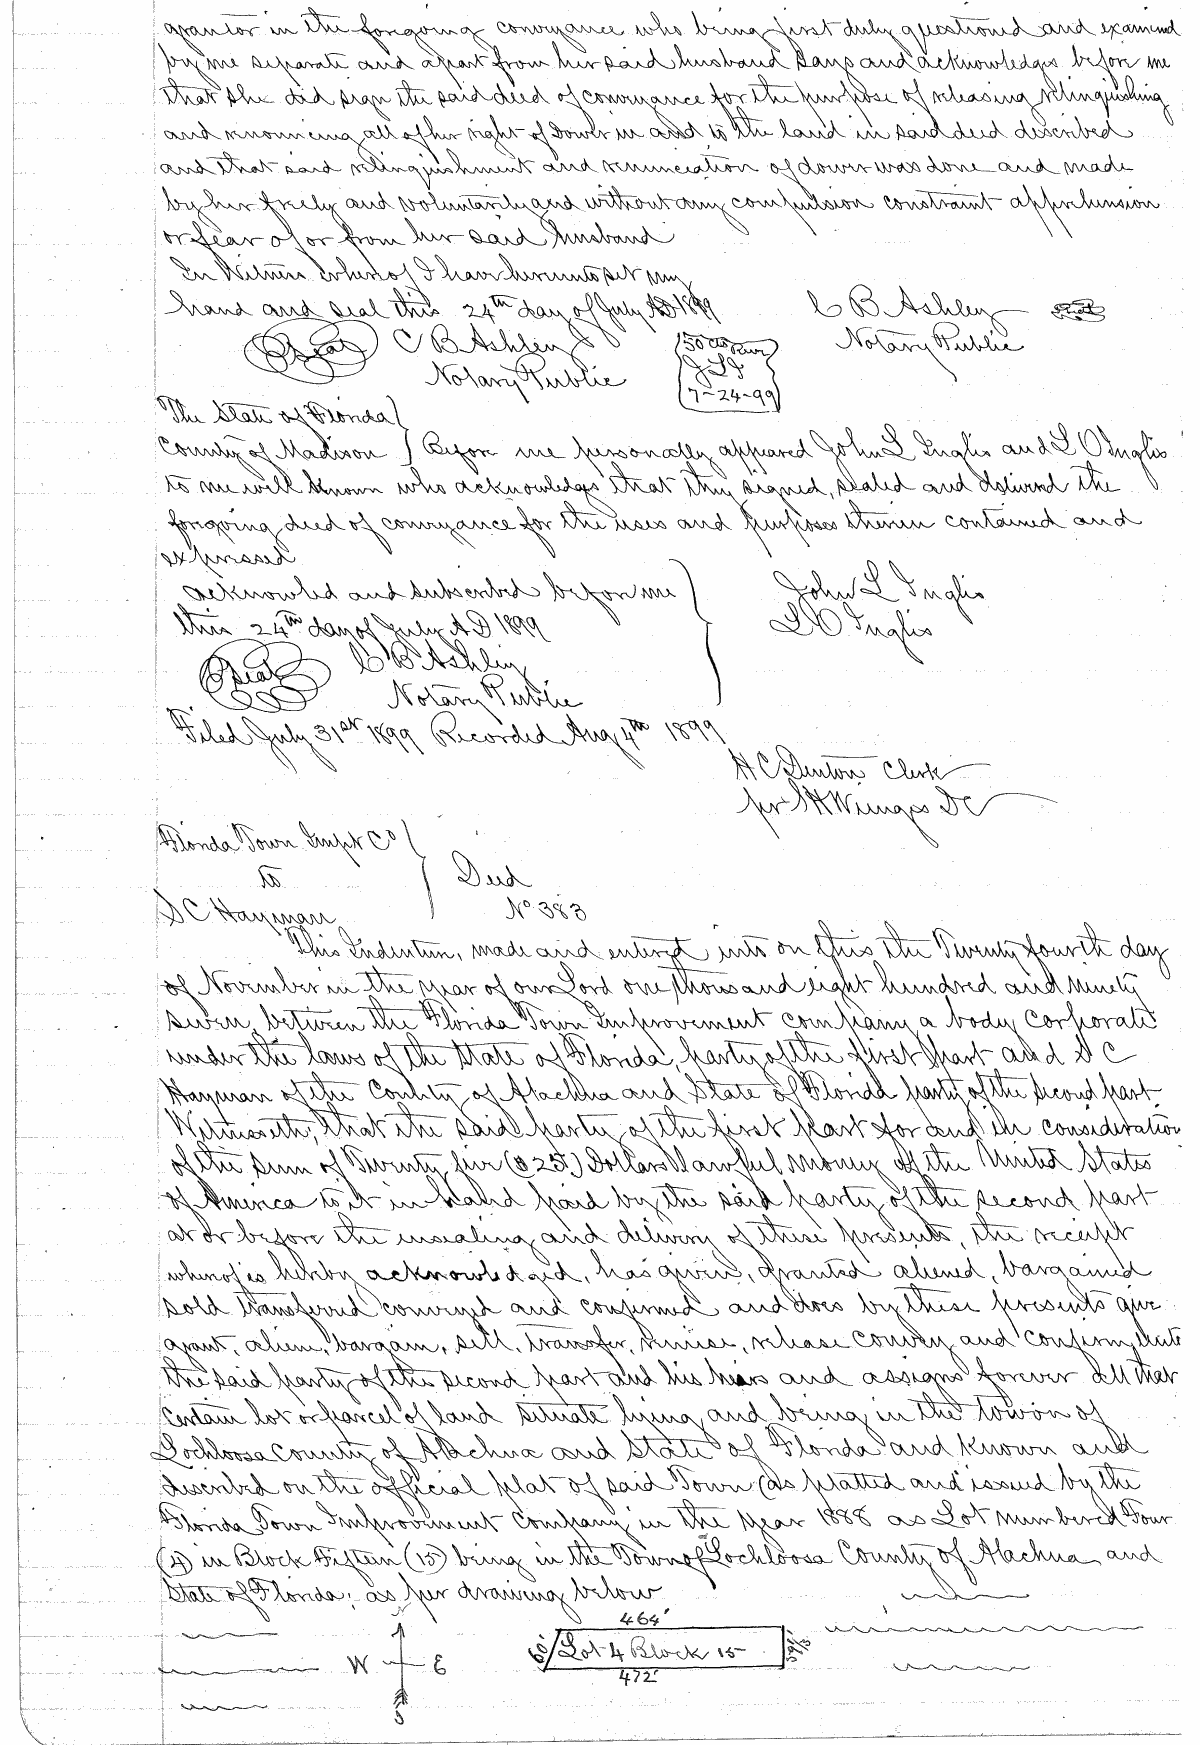 grantor in the foregoing conveyance who being first duly questioned and examined
by me separate and apart from her said husband says and acknowledges before me
that she did sign the said deed of conveyance for the purpose of releasing relinquishing
and renouncing all of her right of Dower in and to the land in said deed described
and that said relinquishment and renunciation of dower was done and made
by her freely and voluntarily and without any compulsion constraint apprehension
or fear of or from her said husband
In Witness whereof I have hereunto set my
hand and seal this 24th day of July AD 1899
C B Ashley Seal
Notary Public
Seal C B Ashley
Notary Public
50 cts Rev
J L I
7-24-99
The State of Florida
County of Madison } Before me personally appeared John L Inglis and L O Inglis
to me well known who acknowledges that they signed, sealed and delivered the
foregoing deed of conveyance for the uses and purposes therein contained and
expressed
acknowled and subscribed before me
this 24th day of July A.D 1899
John L Inglis
L O Inglis
Seal C B Ashley
Notary Public
Filed July 31st 1899 Recorded Aug 4th 1899
H C Denton Clerk
per S H Wienges DC
Florida Town Impt Co
to } Deed
S C Hayman No 383
This Indenture, made and entered into on this the Twenty fourth day
of November in the year of our Lord one thousand eight hundred and ninety
seven, between the Florida Town Improvement company a body corporate
under the laws of the State of Florida, party of the first part and S C
Hayman of the County of Alachua and State of Florida party of the second part
Witnesseth, that the said party of the first part for and in consideration
of the sum of Twenty five ($25.) Dollars lawful money of the United States
of America to it in hand paid by the said party of the second part
at or before the ensealing and delivery of these presents, the receipt
whereof is hereby acknowledged, has given, granted aliened, bargained
sold transferred conveyed and confirmed and does by these presents give
grant, alien, bargain, sell, transfer, remise, release convey and confirm, unto
the said party of the second part and his heirs and assigns forever all that
certain lot or parcel of land situate lying and being in the town of
Lochloosa County of Alachua and State of Florida and known and
described on the official plat of said Town (as platted and issued by the
Florida Town Improvement Company in the year 1888 as Lot numbered Four
(4) in Block Fifteen (15) being in the Town of Lochloosa County of Alachua and
State of Florida; as per drawing below
464'
W E Lot 4 Block 15
472'
S